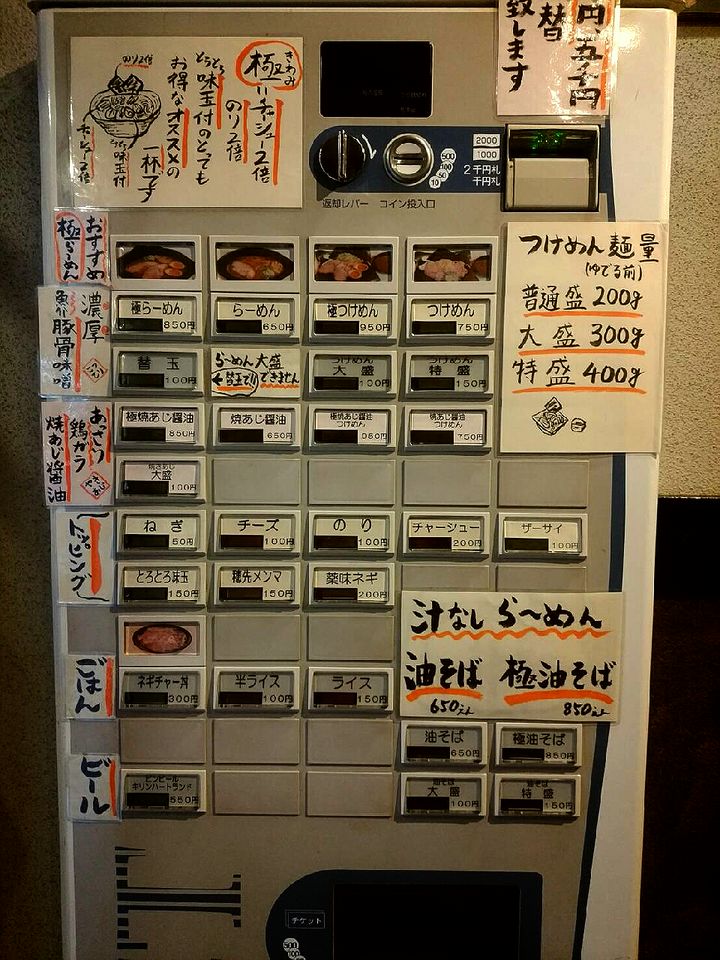 円、五千円
替
致します
極(きわみ)はチャーシュー2倍
のり2倍
とろとろ味玉付のとても
お得なオススメの
一杯です
のり2倍
チャーシュー2倍
とろとろ味玉付
返却レバー コイン投入口
500
100
50
10
2000
1000
2千円札
千円札
おすすめ
極らーめん
極らーめん 850円
らーめん 650円
極つけめん 950円
つけめん 750円
濃厚
魚介豚骨味噌
替玉 100円
らーめん大盛
←替玉でできません
つけめん 大盛 100円
つけめん 特盛 150円
つけめん麺量
(ゆでる前)
普通盛 200g
大盛 300g
特盛 400g
あっさり
鶏ガラ
焼あじ醤油
極焼あじ醤油 850円
焼あじ醤油 650円
極焼あじ醤油 つけめん
焼あじ醤油 つけめん 750円
焼きあじ 大盛 100円
トッピング
ねぎ 50円
チーズ 100円
のり 100円
チャーシュー 200円
ザーサイ 100円
とろとろ味玉 150円
穂先メンマ 150円
薬味ネギ 200円
汁なしら〜めん
油そば 極油そば
650えん 850えん
ごはん
ネギチャー丼 300円
半ライス 100円
ライス 150円
油そば 650円
極油そば 850円
ビール
ビンビール
キリンハートランド 550円
油そば 大盛 100円
油そば 特盛 150円
チケット
500
100